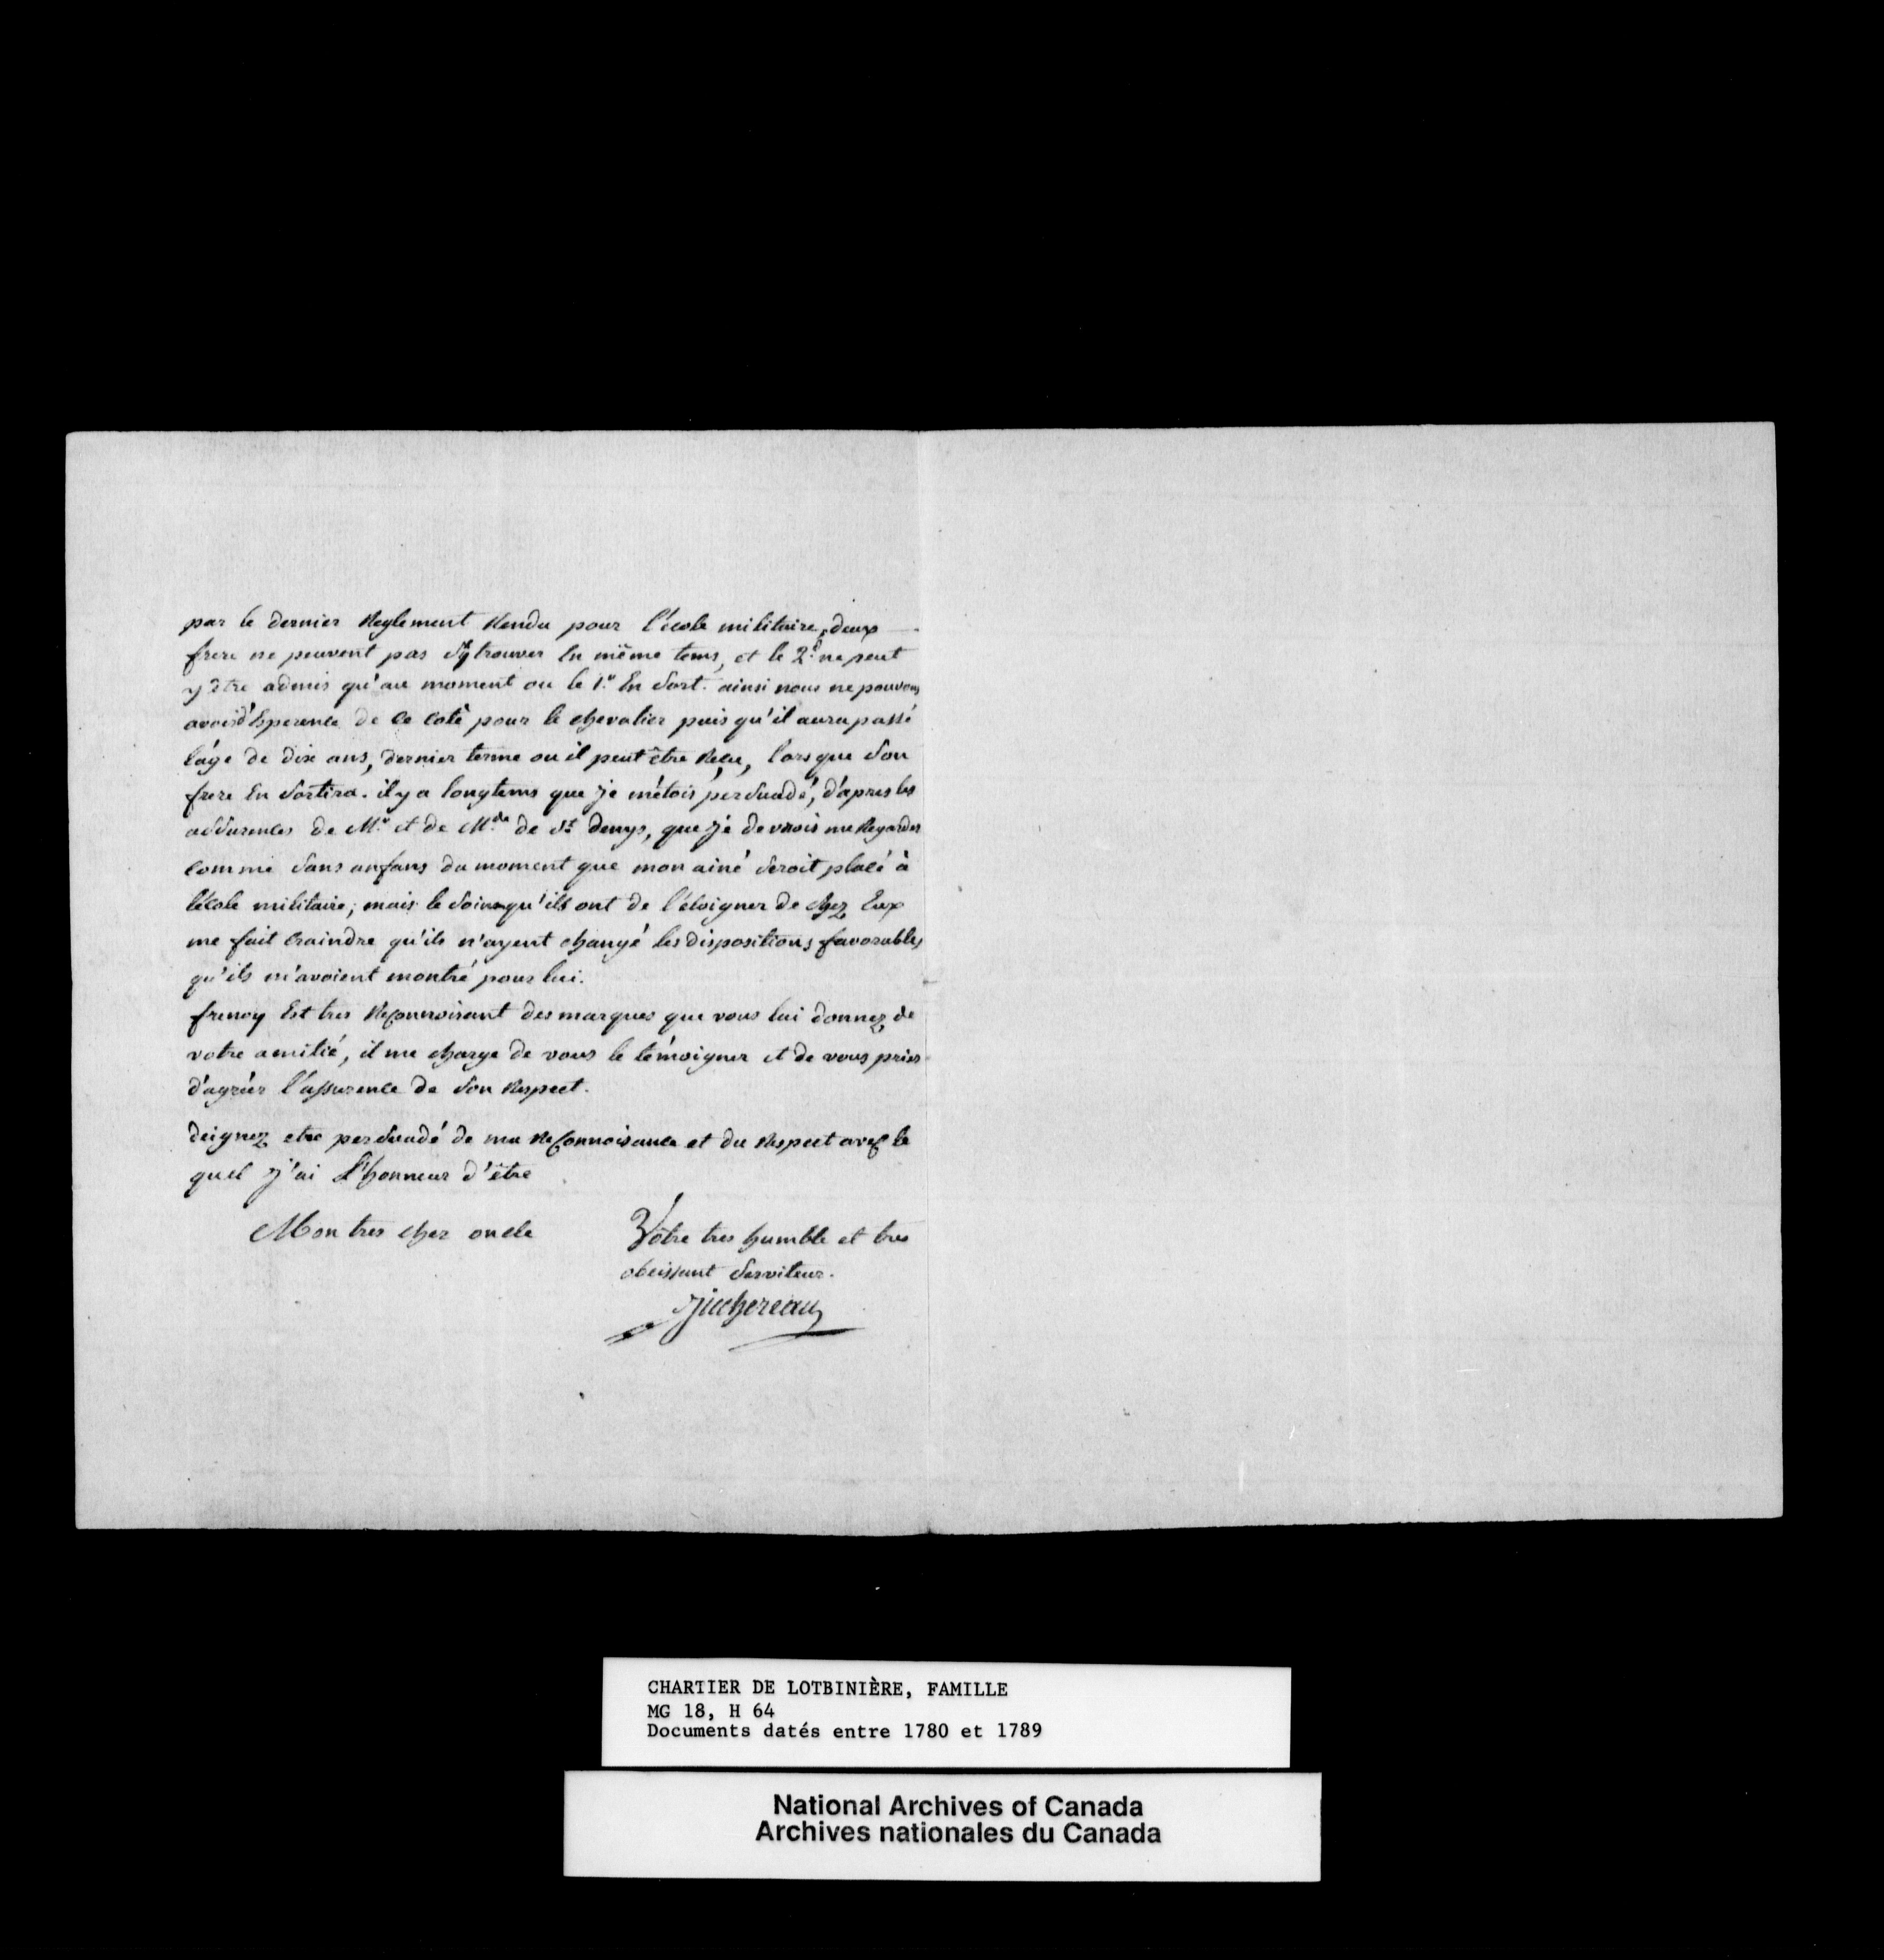 par le dernier Reglement Rendu pour l'école militaire, deux
frere ne peuvent pas s'y trouver En même tems, et le 2.d ne peut
y être admis qu'au moment ou le 1.er En sort. ainsi nous ne pouvons
avoir d'Esperence de Ce Coté pour le chevalier puis qu'il aura passé
l'áge de dix ans, dernier terme ou il peut être Reçu, lorsque son
frere En sortira. il y a longtems que je m'étois persuadé, d'apres les
assurences de M.r et de M.de de st denys, que je devrois me Regarder
Comme sans anfans du moment que mon ainé seroit placé à
l'école militaire; mais le soin qu'ils ont de l'éloigner de chez Eux
me fait Craindre qu'ils n'ayent changé les dispositions favorables
qu'ils m'avoient montré pour lui.
frenoy Est tres Reconnoisant des marques que vous lui donnez de
votre amitié, il me charge de vous le témoigner et de vous prier
d'agréer l'assurence de son Respect.
deignez etre persuadé de ma Reconnoisance et du Respect avec le
quel j'ai l'honneur d'être
Mon tres cher oncle
Vôtre tres humble et tres
obeissant serviteur.
Juchereau
CHARTIER DE LOTBINIÈRE, FAMILLE
MG 18, H 64
Documents datés entre 1780 et 1789
National Archives of Canada
Archives nationales du Canada